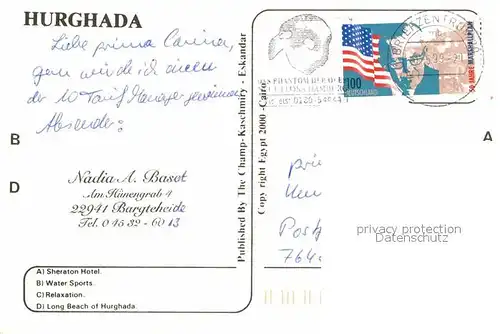 HURGHADA
Liebe prima Carina,
gern würde ich einen
der 10 Tarif Manager gewinnen
Absender:
B
D
A
Nadia A. Basot
Am Hünengrab 4
22941 Bargteheide
Tel. 0 45 32 - 60 13
A) Sheraton Hotel.
B) Water Sports.
C) Relaxation.
D) Long Beach of Hurghada.
Published By The Champ-Kaschmiry - Eskandar
Copy right Egypt 2000 - Cairo
BRIEFZENTRUM
PHANTOM DER OPER
100
DEUTSCHLAND
50 JAHRE MARSHALLPLAN
pri
Post
764
privacy protection
Datenschutz